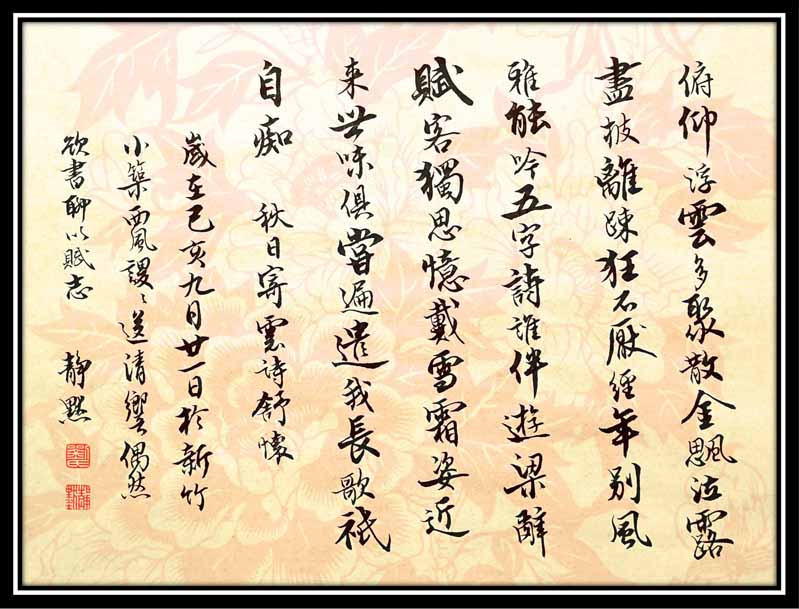 俯仰浮雲多聚散金颸泣露
盡披離疎狂不厭經年別風
雅能吟五字詩誰伴遊梁辭
賦客獨思憶戴雪霜姿近
来世味俱嘗遍遣我長歌祇
自痴 秋日寄雲詩舒懷
歲在己亥九月廿一日於新竹
小築西風謖〻送清響偶然
欲書聊以賦志 靜默